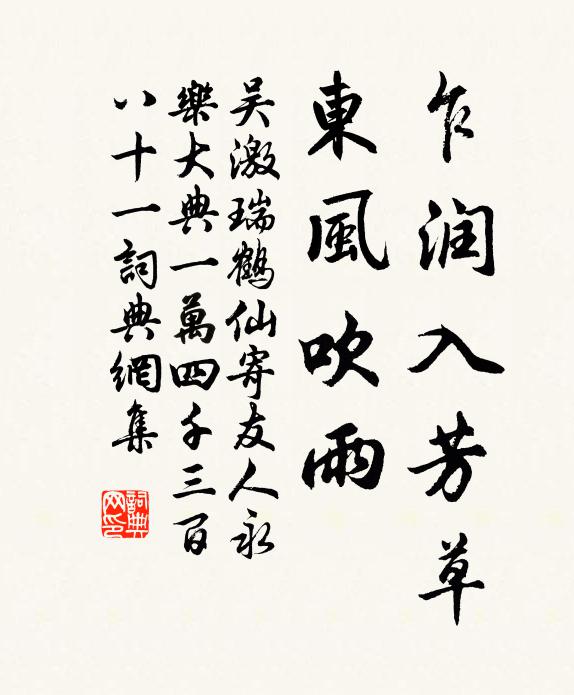 乍润入芳草
東風吹雨
吴激瑞鶴仙寄友人永
樂大典一萬四千三百
八十一詞典網集
詞典
网印